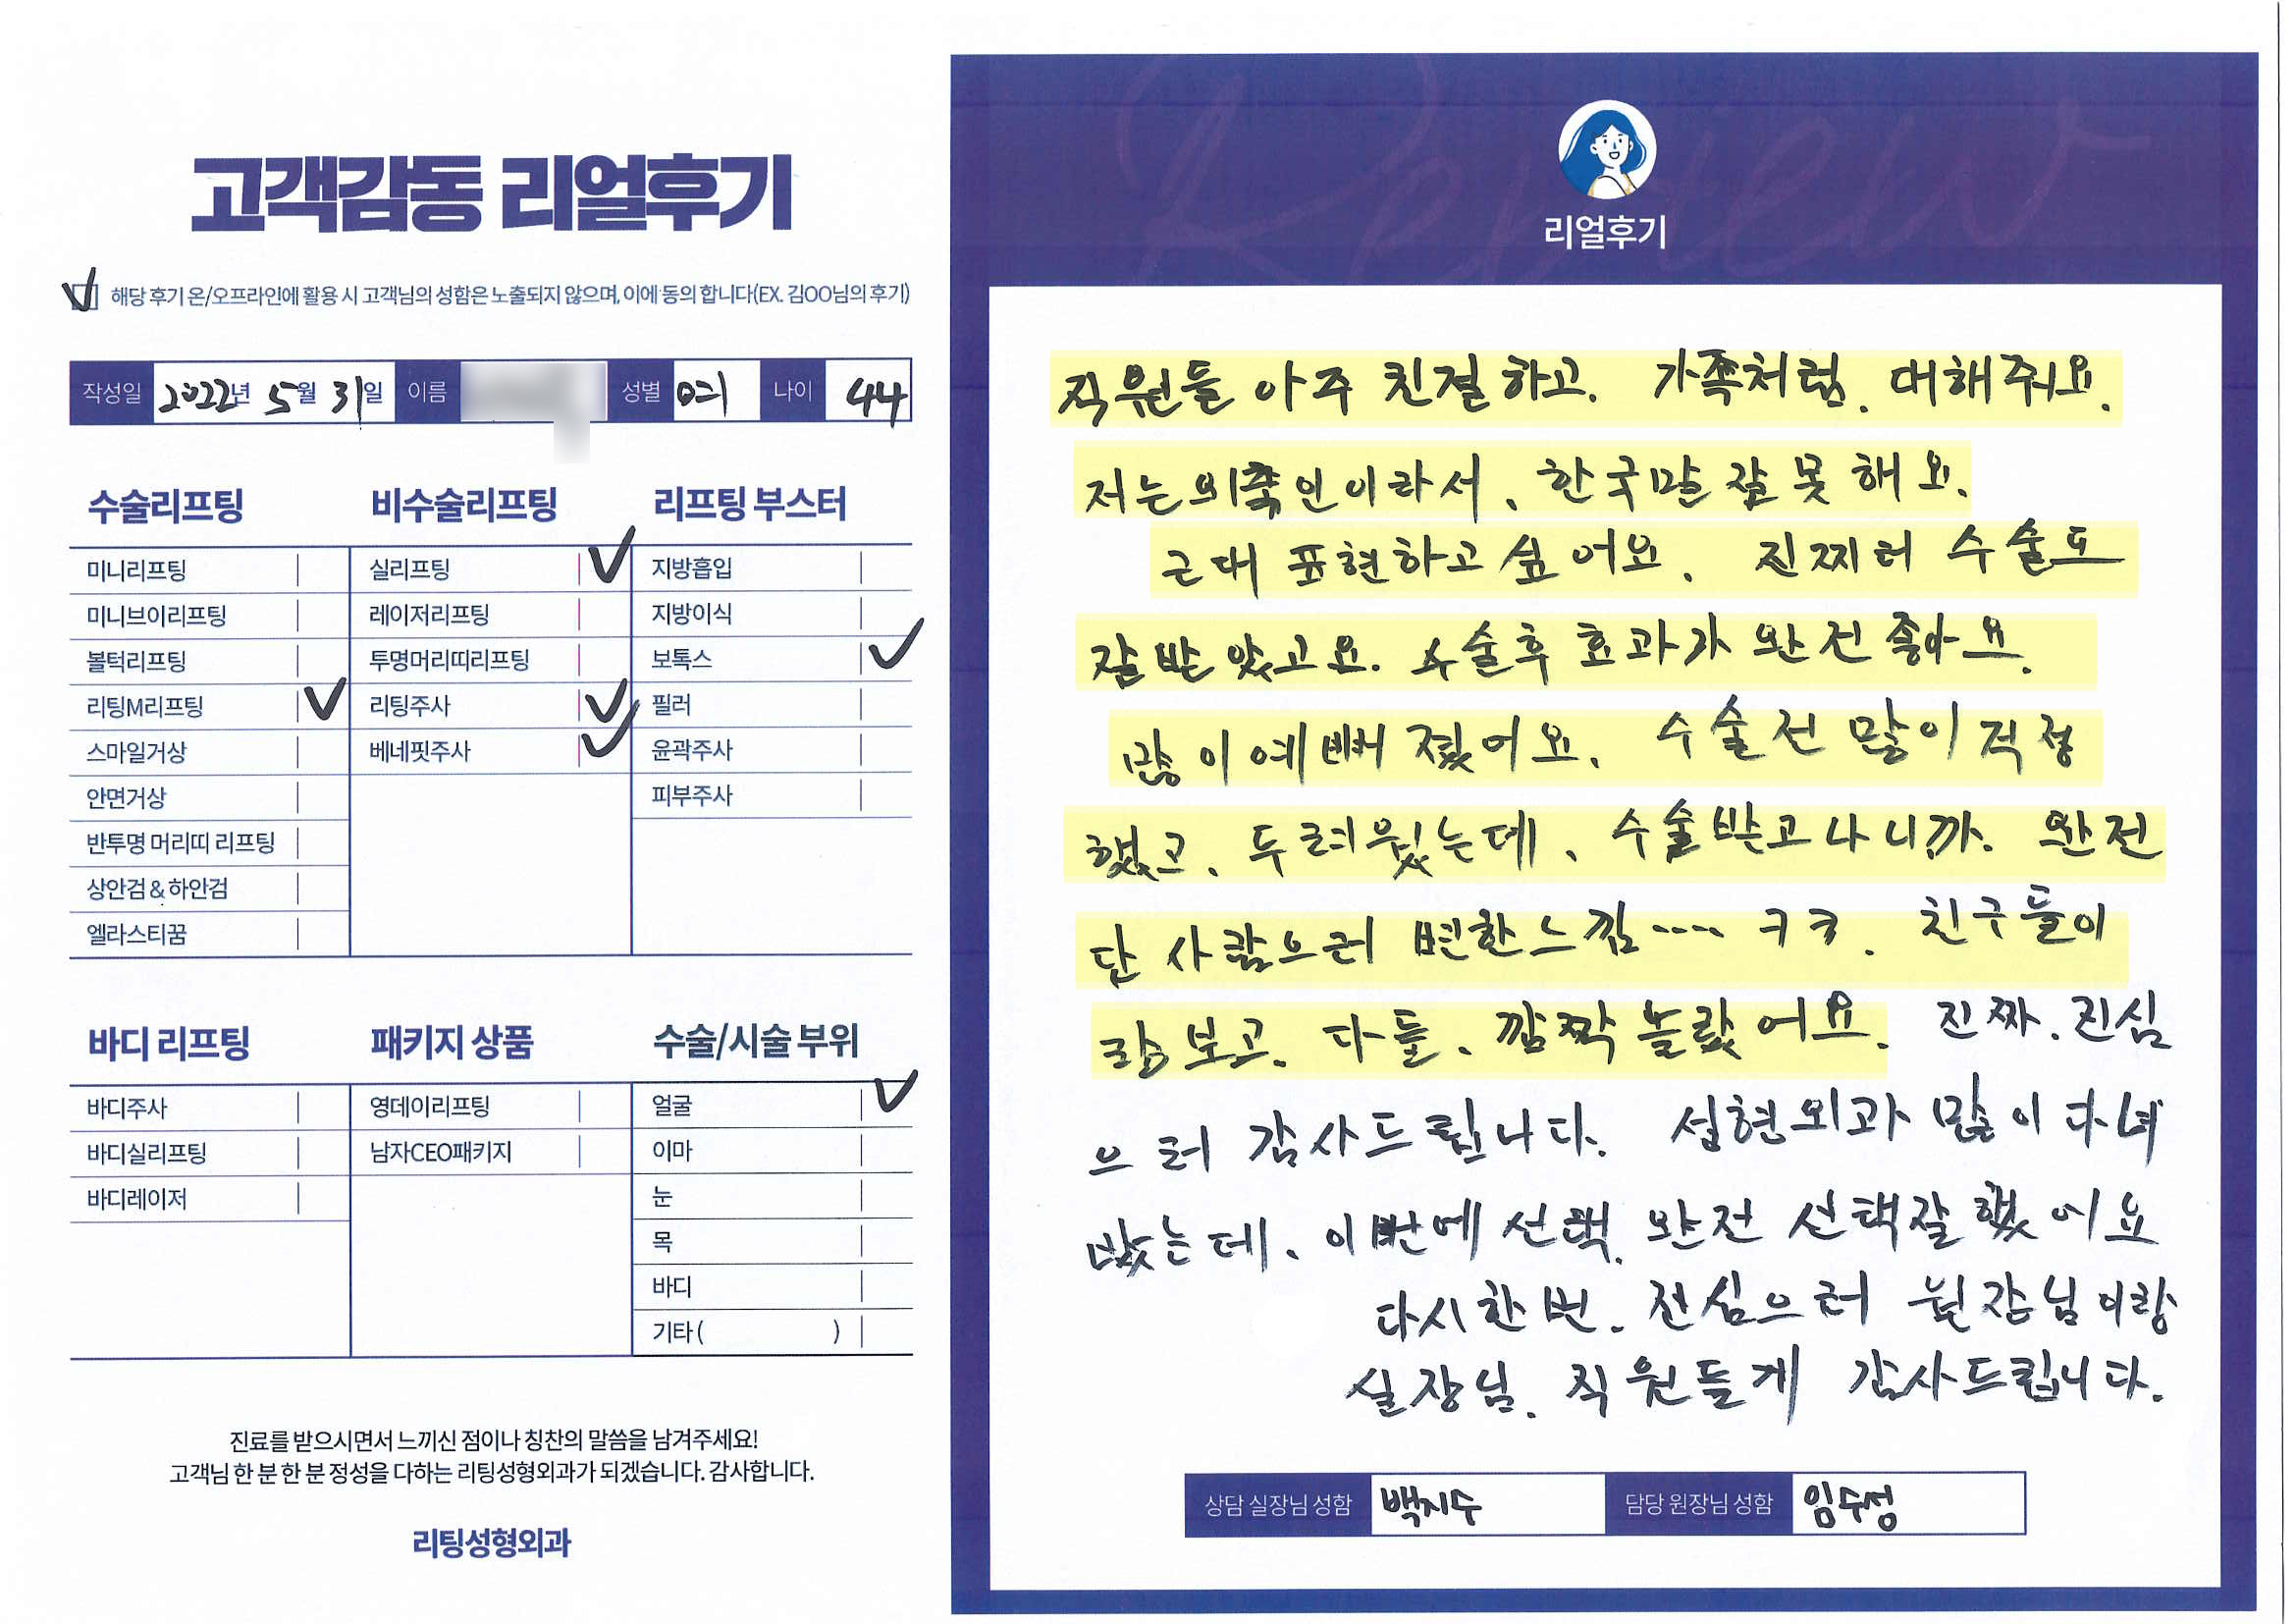 고객감동 리얼후기
해당 후기 온/오프라인에 활용 시 고객님의 성함은 노출되지 않으며, 이에 동의 합니다(EX. 김OO님의 후기)
작성일 2022년 5월 31일 이름 성별 여 나이 44
수술리프팅
미니리프팅
미니브이리프팅
볼턱리프팅
리팅M리프팅
스마일거상
안면거상
반투명 머리띠 리프팅
상안검 & 하안검
엘라스티꿈
비수술리프팅
실리프팅
레이저리프팅
투명머리띠리프팅
리팅주사
베네핏주사
리프팅 부스터
지방흡입
지방이식
보톡스
필러
윤곽주사
피부주사
바디 리프팅
바디주사
바디실리프팅
바디레이저
패키지 상품
영데이리프팅
남자CEO패키지
수술/시술 부위
얼굴
이마
눈
목
바디
기타 ( )
진료를 받으시면서 느끼신 점이나 칭찬의 말씀을 남겨주세요!
고객님 한 분 한 분 정성을 다하는 리팅성형외과가 되겠습니다. 감사합니다.
리팅성형외과
Review
리얼후기
직원들 아주 친절하고. 가족처럼. 대해줘요.
저는 이라서. 한국말 잘 못 해요.
근대 표현하고 싶어요. 진찌러 수술도
잘 받았고요. 수술후 효과가 완전 좋아요.
많이 예뻐졌어요. 수술전 많이 걱정
했고. 두려웠는데. 수술받고나니까. 완전
단 사람으러 변한느낌···· ㅋㅋ. 친구들이
보고. 다들. 깜짝 놀랐어요. 진짜. 진심
으러 감사드립니다. 성현외과 많이 다녀
봤는데. 이번에 선택. 완전 선택잘했어요
다시한번. 진심으러 원장님이랑
실장님. 직원들게 감사드립니다.
상담 실장님 성함 백지수 담당 원장님 성함 임수성